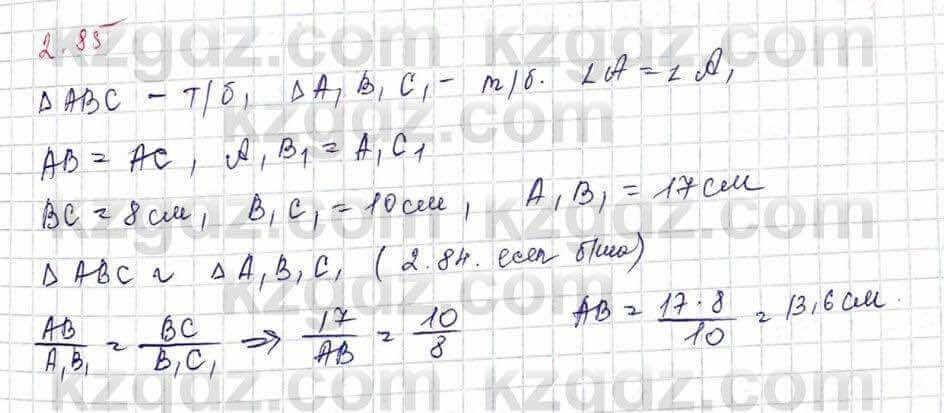 2.85
Δ ABC – т/б, Δ A₁B₁C₁ – т/б. ∠A = ∠A₁
AB = AC, A₁B₁ = A₁C₁
BC = 8 см, B₁C₁ = 10 см, A₁B₁ = 17 см
Δ ABC ~ Δ A₁B₁C₁ (2.84. есеп б/ша)
AB/A₁B₁ = BC/B₁C₁ ⇒ 17/AB = 10/8 AB = 17·8/10 = 13,6 см.
kzgdz.com
kzgdz.com
kzgdz.com
kzgdz.com
kzgdz.com
kzgdz.com